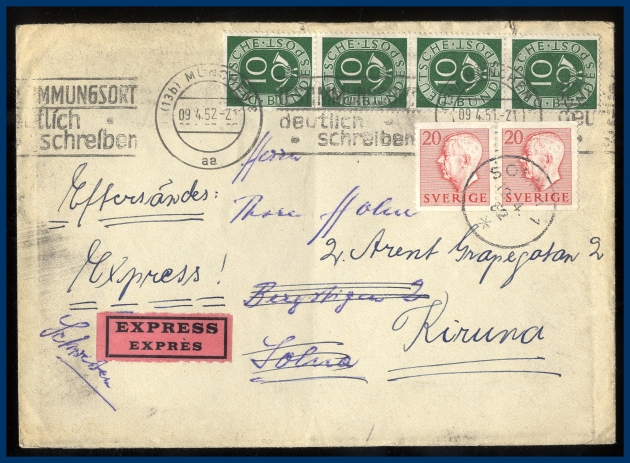 10 10 10 10
DEUTSCHE·BUNDESPOST DEUTSCHE·BUNDESPOST DEUTSCHE·BUNDESPOST DEUTSCHE·BUNDESPOST
(13b) MÜNCHEN
MMUNGSORT
09 4.52.-21
09 4.52.-21
tlich
deutlich
schreiben
schreiben
aa
20 20
SVERIGE SVERIGE
Herrn
Eftersändes:
Thore Holm
2. Arent Grapegatan 2
Express!
Bergstigen 2
Kiruna
EXPRESS
EXPRÈS
Solna
Schweden